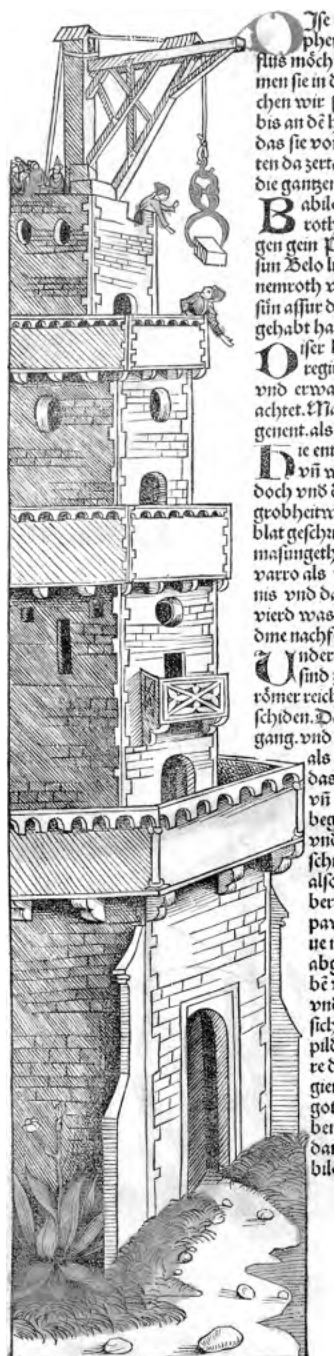 Dise
flüs möch
men sie in d
chen wir
bis an dē h
das sie vor
ten da zert
die gantzen
Babilo
roth
gen gein
sun Belo
nemroth v
sün assur d
gehabt ha
Diser
regi
vnd erwa
achtet. Ma
genent. als
Die ent
vñ w
doch vnd d
grobheit
blat gesch
masungeth
varro als
nis vnd da
vierd was
dine nachf
Under
sind
römer reich
schiden. D
gang. vnd
als
das
vñ
beg
vnd
schr
alse
ber
pa
ue n
abg
bē
vnd
sich
pild
re d
gier
got
ben
dar
bilo